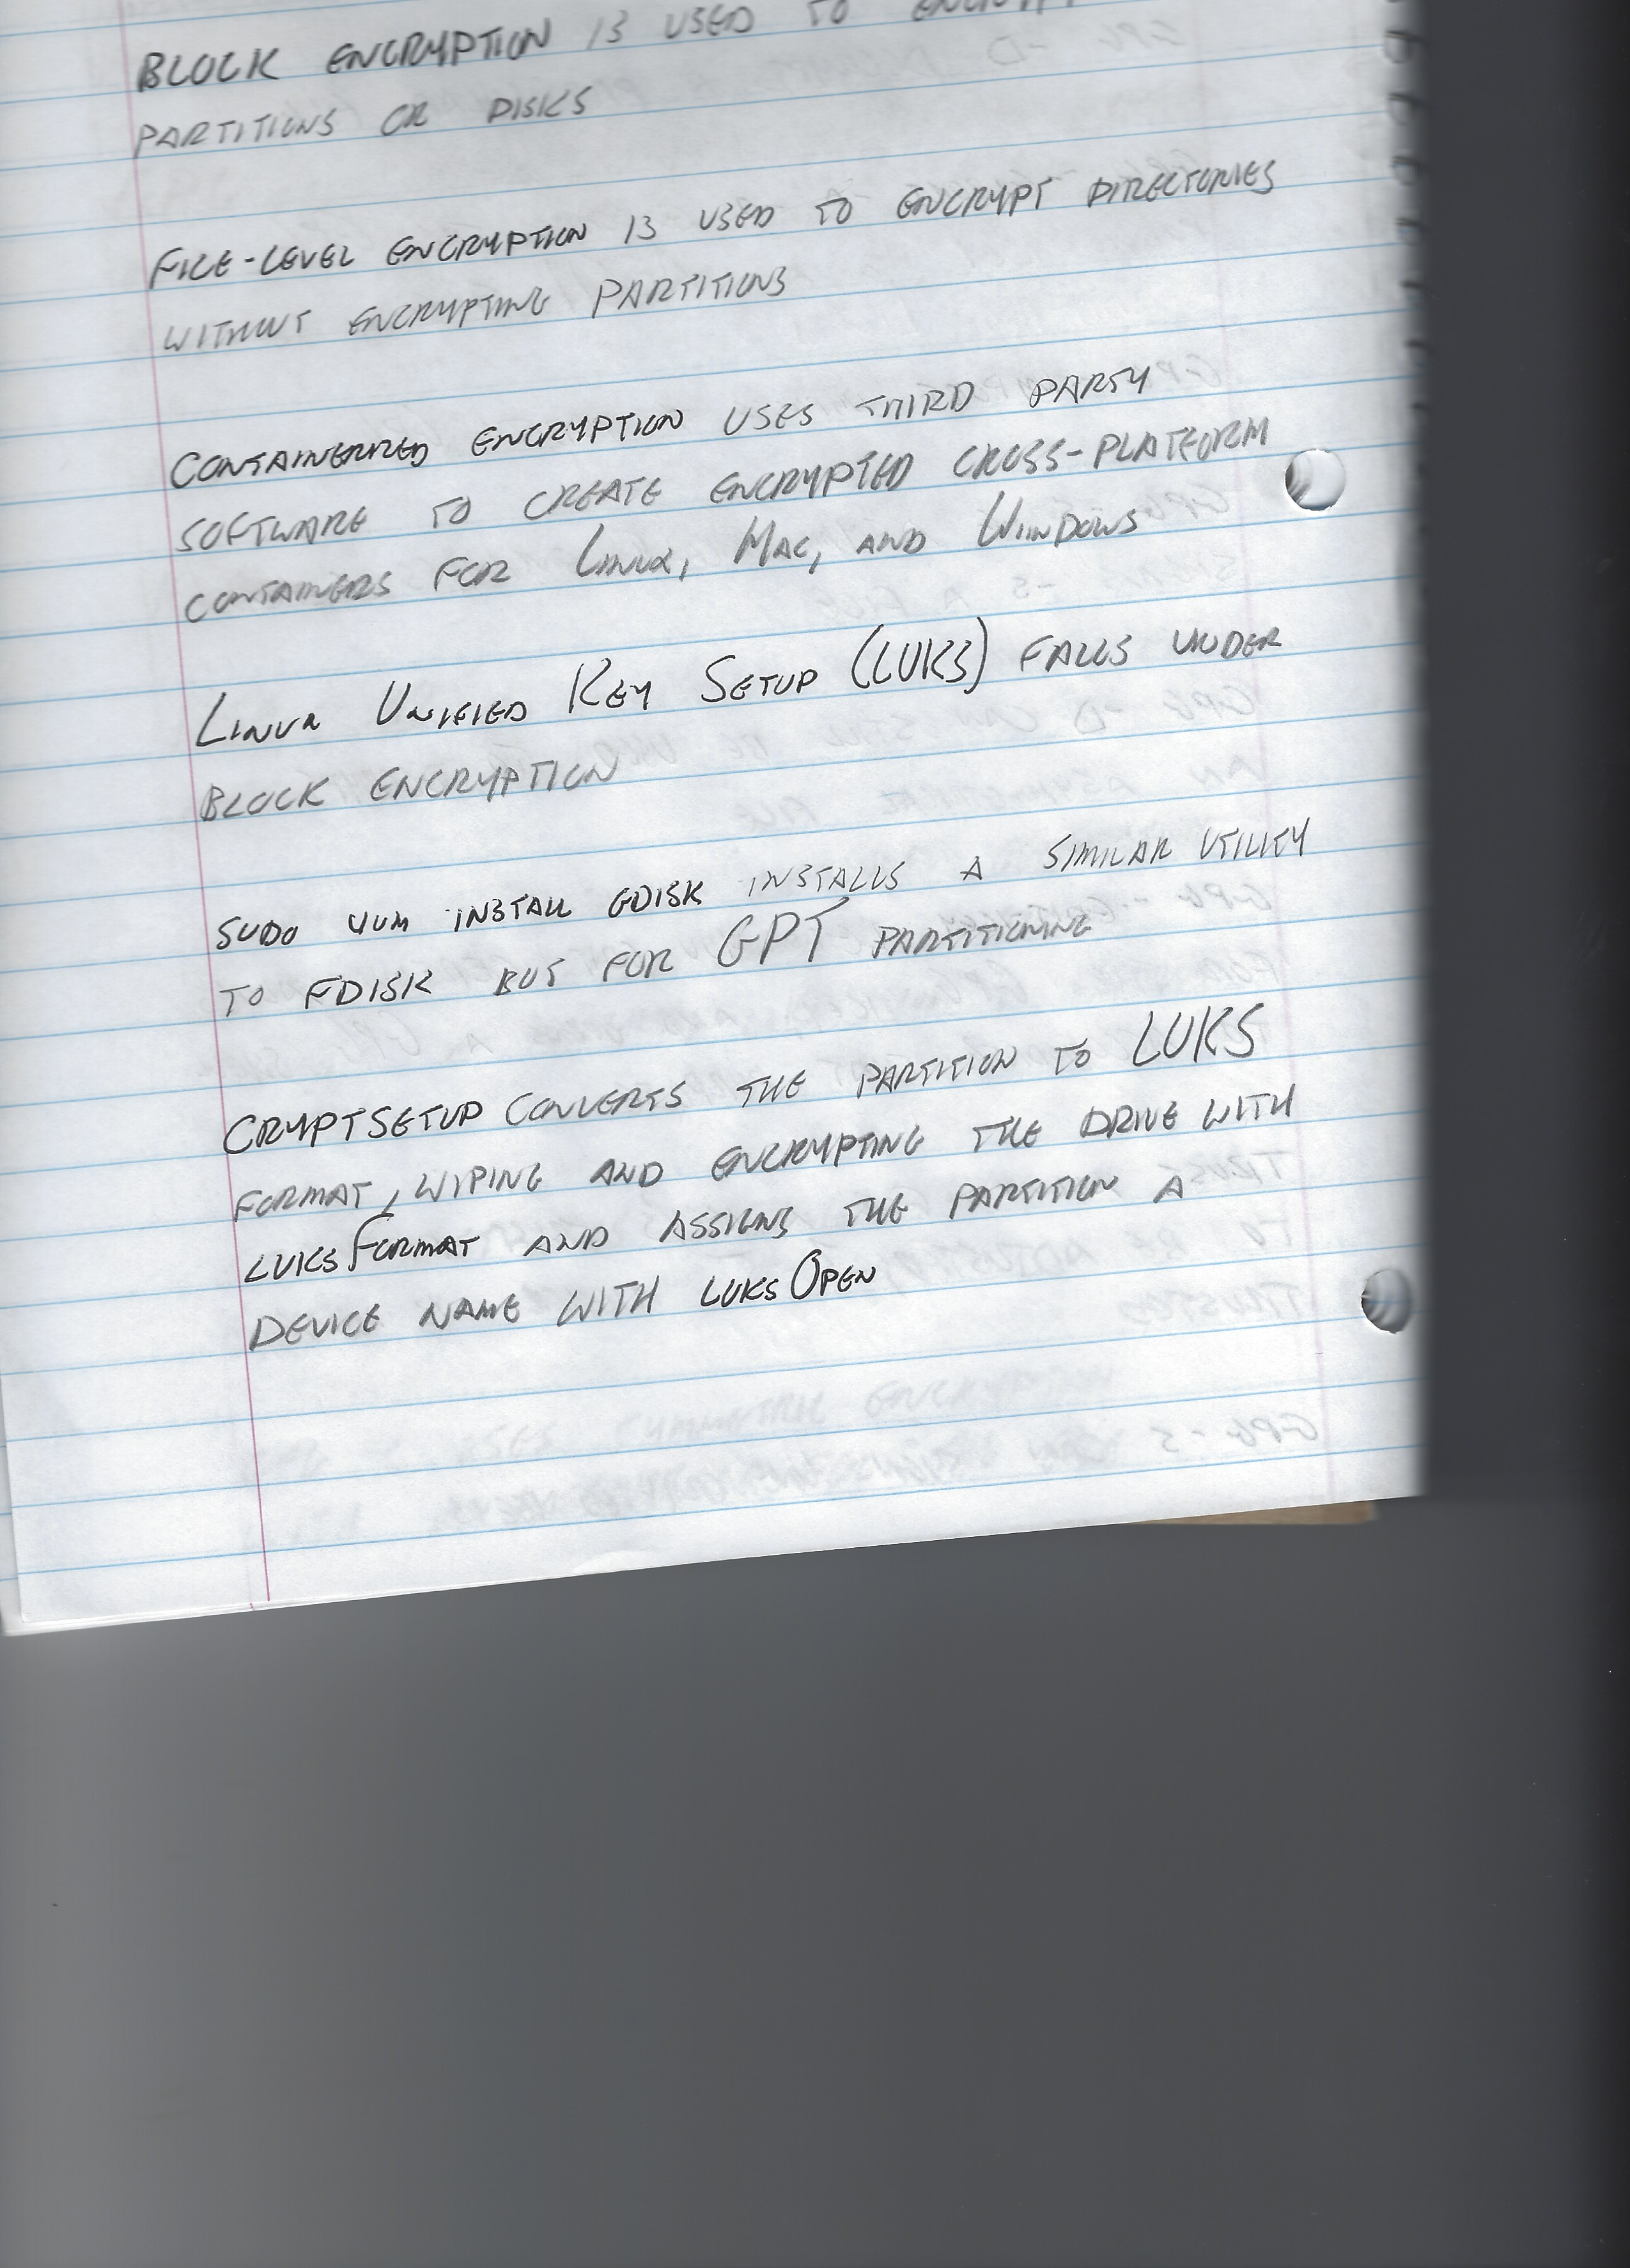 BLOCK ENCRYPTION IS USED TO ENCRYPT
PARTITIONS OR DISKS
FILE-LEVEL ENCRYPTION IS USED TO ENCRYPT DIRECTORIES
WITHOUT ENCRYPTING PARTITIONS
CONTAINERRED ENCRYPTION USES THIRD PARTY
SOFTWARE TO CREATE ENCRYPTED CROSS-PLATFORM
CONTAINERS FOR LINUX, MAC, AND WINDOWS
LINUX UNIFIED KEY SETUP (LUKS) FALLS UNDER
BLOCK ENCRYPTION
SUDO YUM INSTALL GDISK INSTALLS A SIMILAR UTILITY
TO FDISK BUT FOR GPT PARTITIONING
CRYPTSETUP CONVERTS THE PARTITION TO LUKS
FORMAT, WIPING AND ENCRYPTING THE DRIVE WITH
LUKSFORMAT AND ASSIGNS THE PARTITION A
DEVICE NAME WITH LUKSOPEN